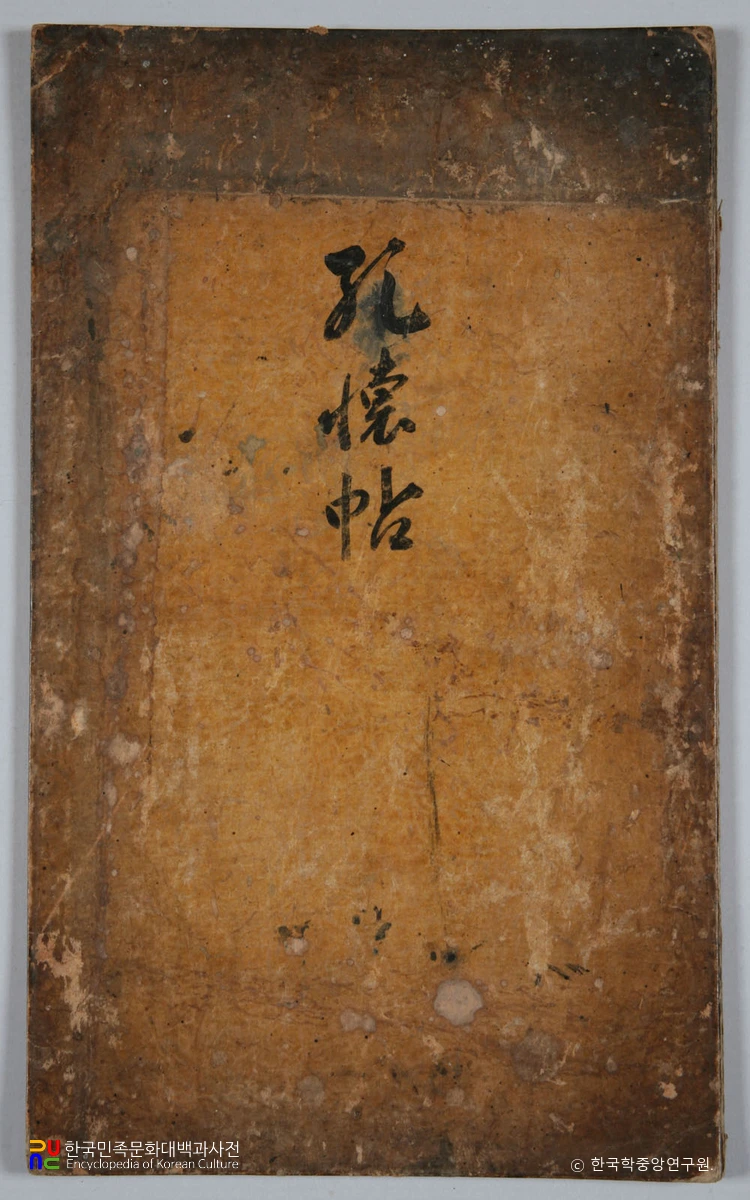 孔懷帖
한국민족문화대백과사전
Encyclopedia of Korean Culture
© 한국학중앙연구원